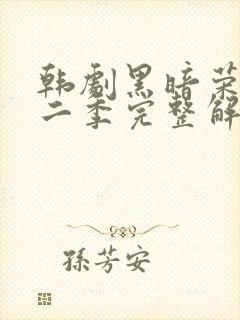 韩劇黑暗荣
二季完整解
孫芳安